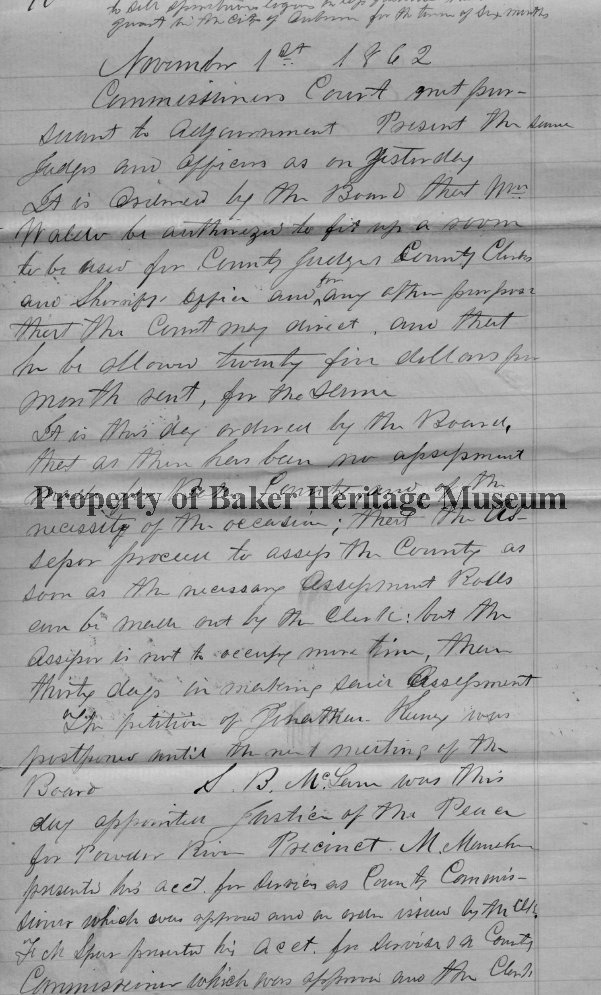 to sell Spirituous liquors in less quantities than one
quart in the City of Auburn for the term of Six months
November 1st 1862
Commissioners Court met pur-
suant to adjournment Present the same
Judges and officers as on yesterday
It is Ordered by the Board that Wm
Waldo be authorized to fit up a room
to be used for County Judges County Clerks
and Sheriffs office and for any other purpose
that the Court may direct, and that
he be allowed twenty five dollars per
month rent, for the same
It is this day ordered by the Board,
that as there has been no assessment
made in Baker County and of the
Property of Baker Heritage Museum
necessity of the occasion; that the As-
sessor proceed to assess the County as
soon as the necessary Assessment Rolls
can be made out by the Clerk: but the
Assessor is not to occupy more time, than
thirty days in making said Assessment
The petition of Jonathan Keeney was
postponed until the next meeting of the
Board S. B. McLean was this
day appointed Justice of the Peace
for Powder River Precinct. M.
presents his acct. for services as County Commis-
sioner which was approved and an order issued by the Clk.
Spear presented his acct. for services as County
Commissioner which was approved and the Clerk